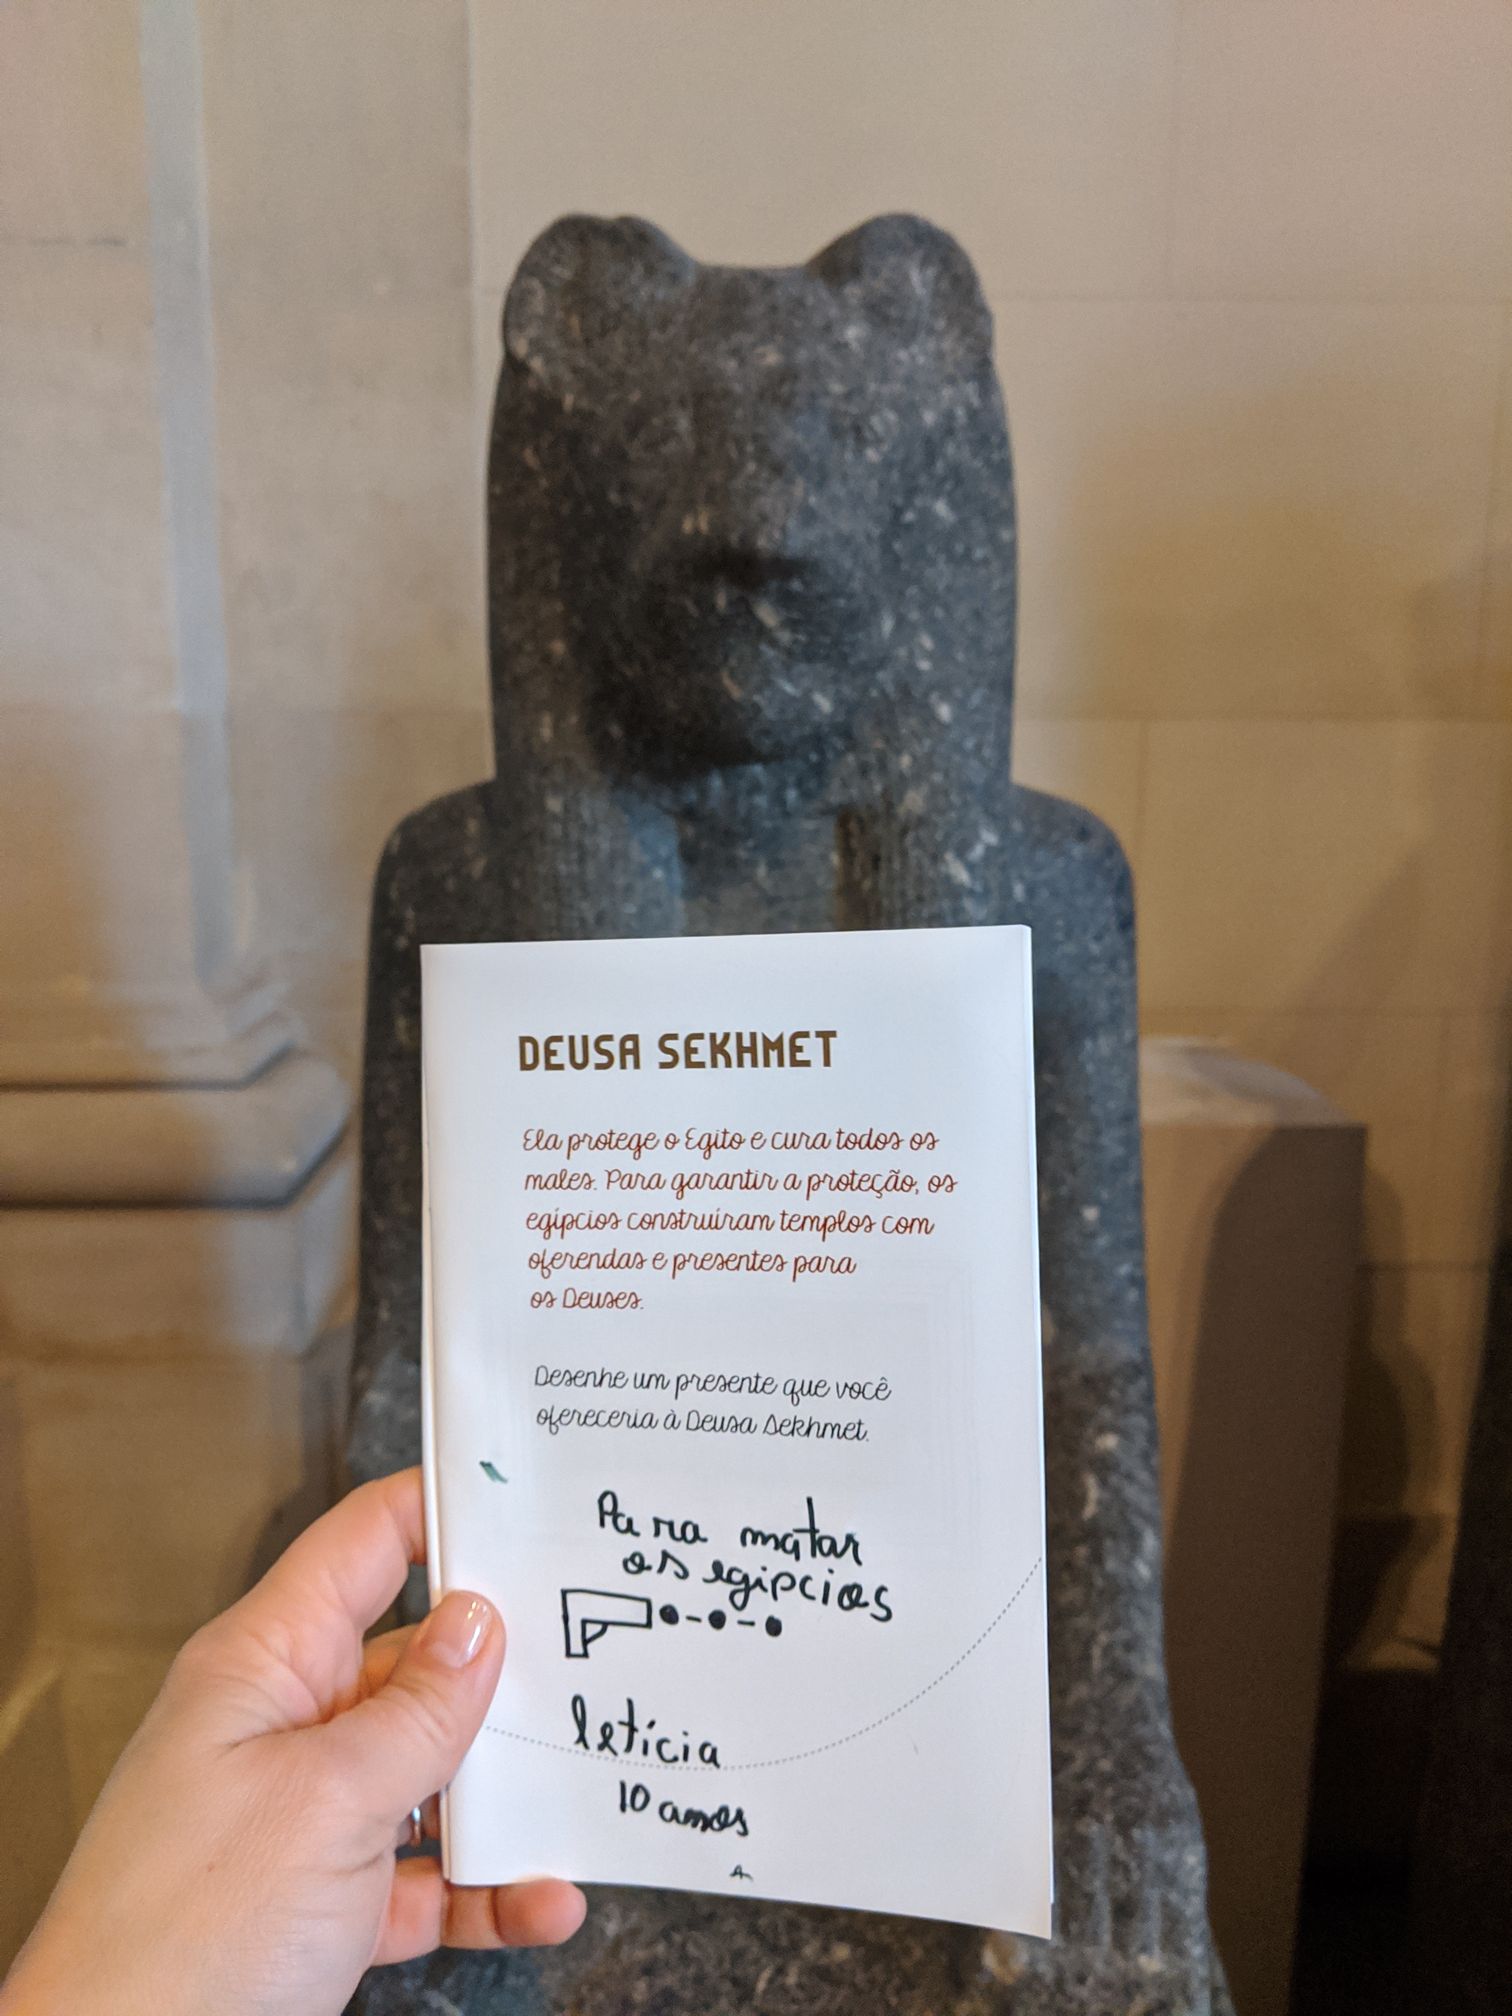 DEUSA SEKHMET
Ela protege o Egito e cura todos os
males. Para garantir a proteção, os
egípcios construíram templos com
oferendas e presentes para
os Deuses.
Desenhe um presente que você
ofereceria à Deusa Sekhmet.
Para matar
os egipcios
letícia
10 anos